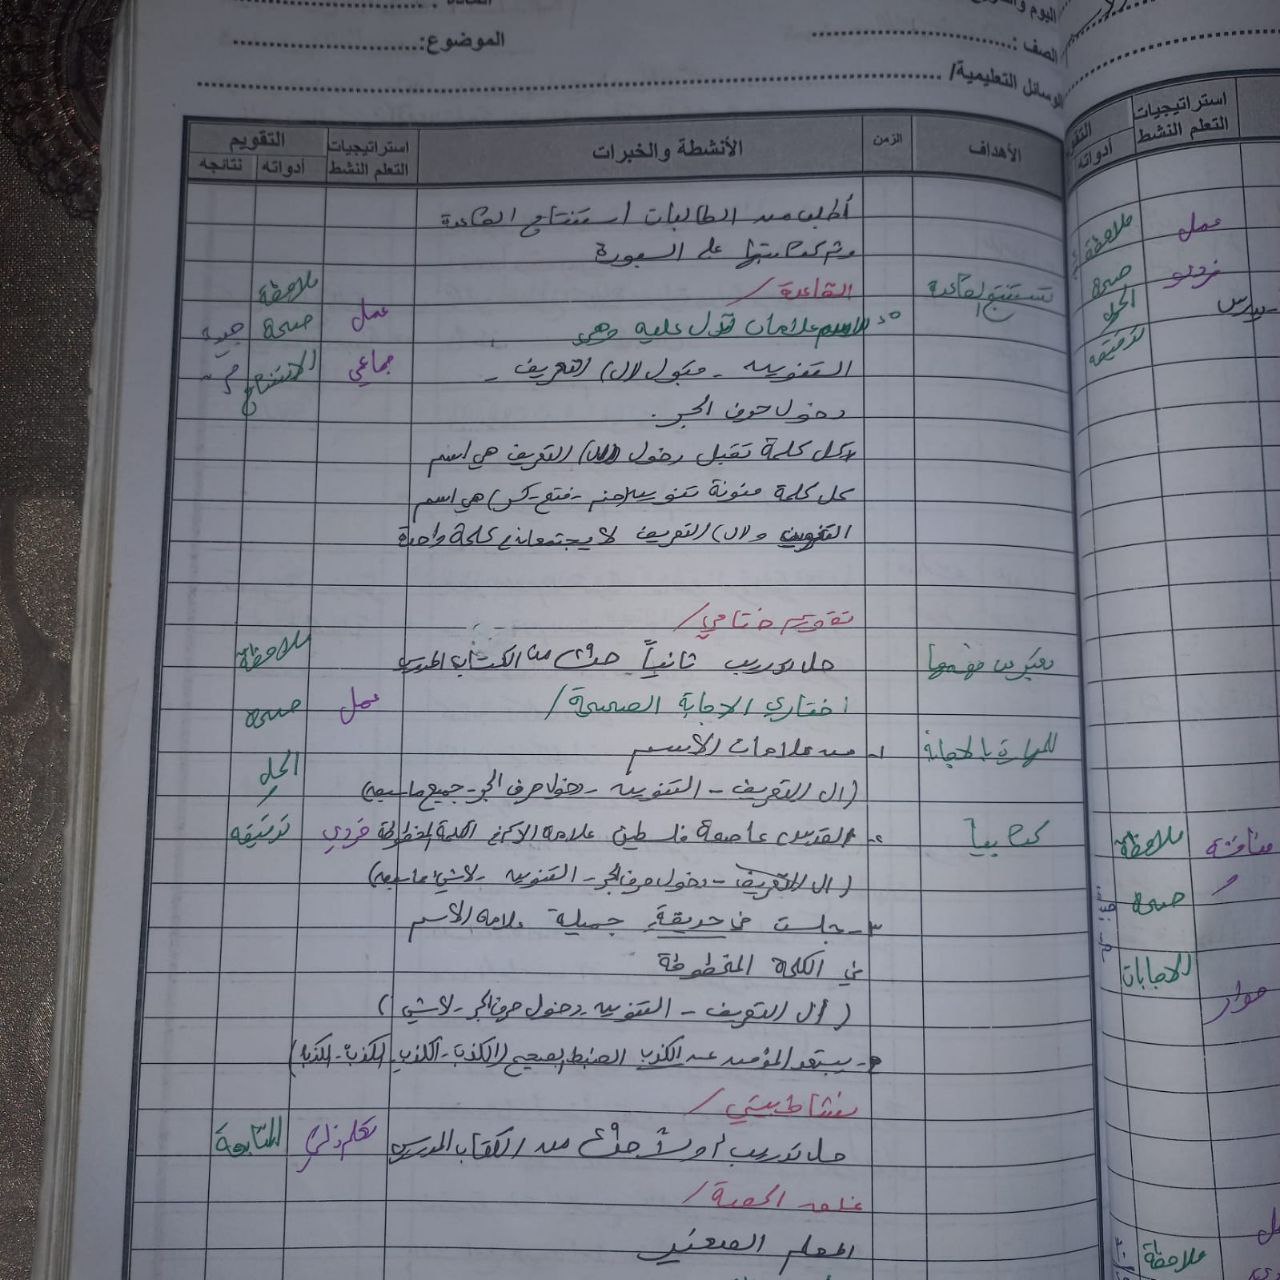 اليوم والتاريخ
المادة :
الصف :
الموضوع:
الوسائل التعليمية/
الأهداف الزمن الأنشطة والخبرات استراتيجيات التعلم النشط التقويم أدواته نتائجه
أطلب من الطالبات استنتاج القاعدة
وثم كتابتها على السبورة
تستنتج القاعدة القاعدة/ ملاحظة
للاسم علامات تدل عليه وهي عمل صحة جيد
التنوين - قبول (ال) التعريف - جماعي الاستنتاج
دخول حرف الجر .
كل كلمة تقبل دخول (ال) التعريف هي اسم
كل كلمة منونة تنوين (ضم - فتح - كسر) هي اسم
التنوين و (ال) التعريف لا يجتمعان في كلمة واحدة
تقويم ختامي/
حل تدريب ثانياً من الكتاب المدرسي ملاحظة
اختاري الاجابة الصحيحة/ عمل صحة
١- من علامات الاسم الحل
(ال التعريف - التنوين - دخول حرف الجر - جميع ما سبق)
كتابياً ٢- القدس عاصمة فلسطين علامة الاسم في الكلمة المخطوطة فردي تدقيقه
(ال التعريف - دخول حرف الجر - التنوين - لاشيء ما سبق)
٣- جلست في حديقة جميلة علامة الاسم
في الكلمة المخطوطة
(ال التعريف - التنوين - دخول حرف الجر - لاشيء)
يبتعد المؤمن عن الكذب الضبط الصحيح (الكذبَ - الكذبِ - الكذبُ - الكذب)
نشاط بيتي/
حل تدريب أولاً من الكتاب المدرسي تعلم ذاتي المتابعة
غلق الحصة/
المعلم الصغير
استراتيجيات التعلم النشط أدواته
عمل ملاحظة
فردي صحة
الحل
تدقيقه
مناقشة ملاحظة
صحة
حوار الاجابات
ملاحظة